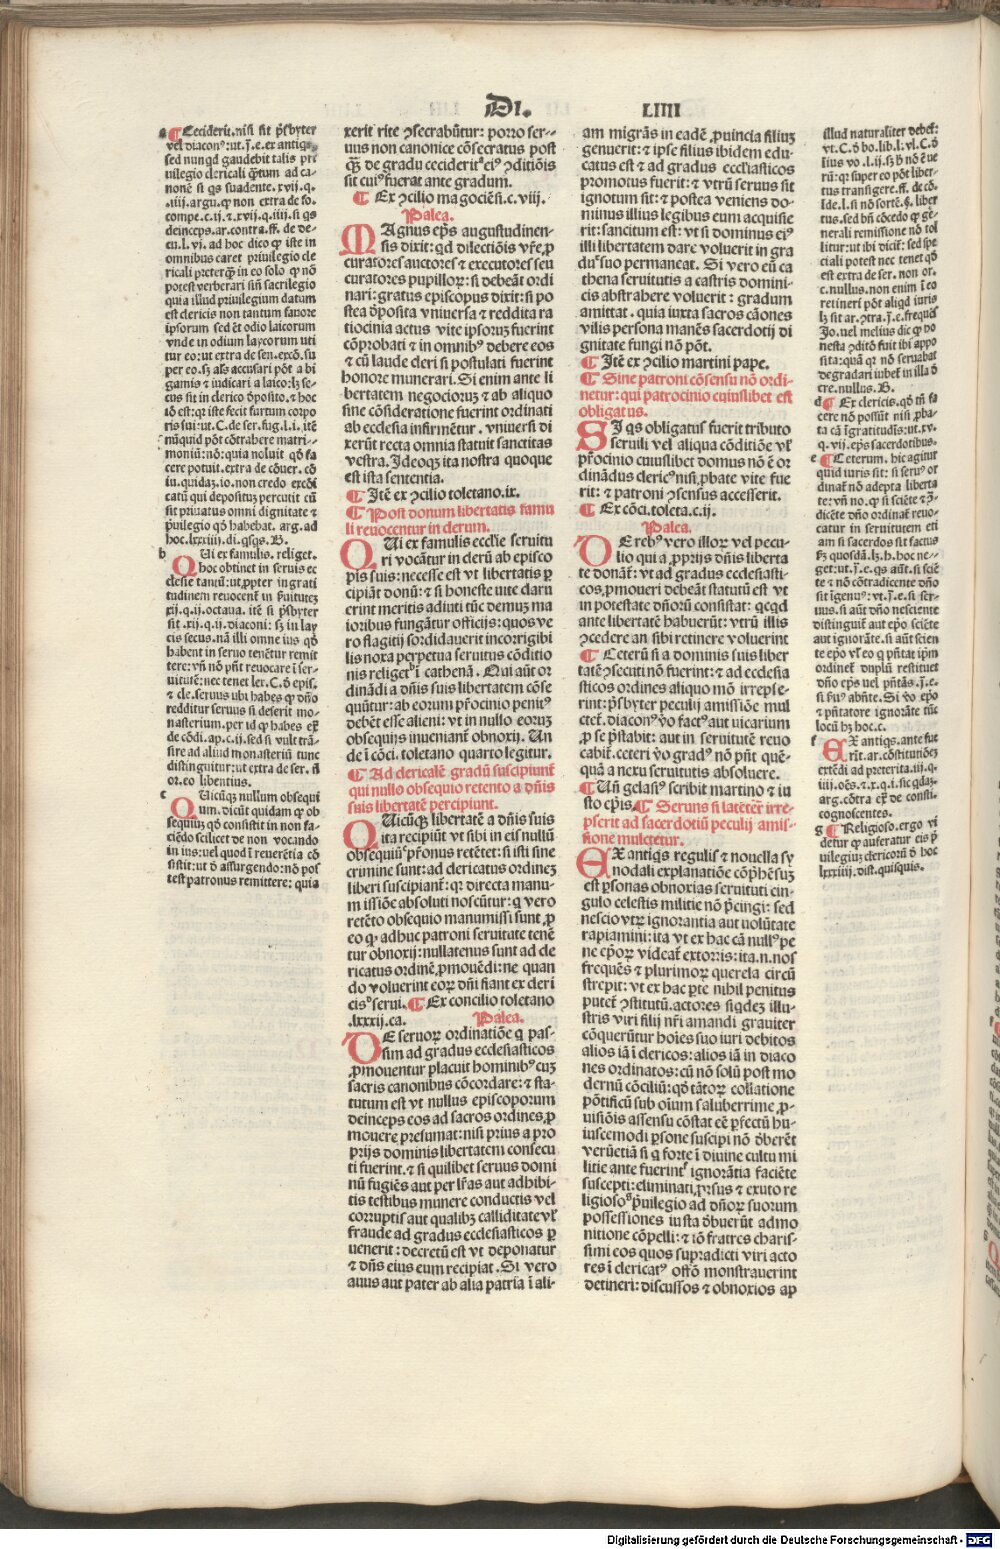 Di.
LIIII
a ¶ Ceciderit. nisi sit p̄sbyter
vel diacon⁹: ut. j̄. e. ex antiqs
sed nunqd gaudebit talis pri
uilegio clericali q̄tum ad ca-
nonē si qs suadente. xvii. q.
.iiii. argu. ꝙ non extra de fo.
compe. c. ij. ⁊ xvii. q. iiii. si qs
deinceps. ar. contra. ff. de de-
cu. l. vi. ad hoc dico ꝙ iste in
omnibus caret priuilegio cle
ricali preterq̄ in eo solo ꝙ nō
potest verberari sin̄ sacrilegio
quia illud priuilegium datum
est clericis non tantum fauore
ipsorum sed ēt odio laicorum
vnde in odium laycorum uti
tur eo: ut extra de sen. excō. su
per eo. sꝫ als̄ accusari pōt a bi
gamis ⁊ iudicari a laico: lꝫ se-
cus sit in clerico d̄posito. ⁊ hoc
iō est: qꝛ iste fecit furtum corpo
ris sui: ut. C. de ser. fug. l. i. itē
nūquid pōt cōtrahere matri-
moniū: nō: quia noluit qd̄ fa
cere potuit. extra de cōuer. cō
iu. quidaȝ. io. non credo excōi
catū qui depositȝ percutit cū
sit priuatus omni dignitate ⁊
p̄uilegio qd̄ habebat. arg. ad
hoc. lxxxiiii. di. qsqs. B.
b Qui ex famulis. religet.
hoc obtinet in seruis ec
clesie tantū: ut ꝓpter in grati
tudinem reuocent̄ in p̄uitutē
xij. q. ij. octaua. itē si p̄sbyter
sit. xij. q. ij. diaconi: sꝫ in lay
cis secus. nā illi omne ius qd̄
habent in seruo tenētur remit
tere: vn̄ nō pn̄t reuocare ī ser-
uitutē: nec tenet lex. C. d̄ epis.
⁊ cle. seruus ubi habes ꝙ dn̄o
redditur seruus si deserit mo-
nasterium. per id ꝙ habes ex̄
de cōdi. ap. c. ij. sed si vult trā-
sire ad aliud monasteriū tunc
distinguitur: ut extra de ser. n̄
or. eo libentius.
c Quicūqȝ nullum obsequi
um. dicūt quidam ꝙ ob
sequiuȝ qd̄ consistit in non fa-
ciēdo scilicet de non vocando
in ius: vel quod ī reuerētia cō
sistit: ut d̄ assurgendo: nō pos
test patronus remittere: quia
xerit rite ꝯsecrabūtur: porro ser-
uus non canonice cōsecratus post
q̄ȝ de gradu ceciderit⸱ ei⁹ ꝯditiōis
sit cui⁹ fuerat ante gradum.
¶ Ex ꝯcilio magociēn̄. c. viij.
Palea.
MAgnus ep̄s augustudinen-
sis dixit: qd̄ dilectiōis vr̄e, ꝓ
curatores auctores ⁊ executores seu
curatores pupilloꝝ: si debeāt ordi
nari: gratus episcopus dixit: si po
stea d̄posita vniuersa ⁊ reddita ra
tiocinia actus vite ipsoruȝ fuerint
cōprobati ⁊ in omnib⁹ debere eos
⁊ cū laude cleri si postulati fuerint
honore munerari. Si enim ante li
bertatem negocioruȝ ⁊ ab aliquo
sine cōsideratione fuerint ordinati
ab ecclesia infirmētur. vniuersi di
xerūt recta omnia statuit sanctitas
vestra. Ideoqȝ ita nostra quoque
est ista sententia.
¶ Itē ex ꝯcilio toletano. ix.
¶ Post donum libertatis famu
li reuocentur in clerum.
QUi ex familis eccl̄ie seruitu
ri vocātur in clerū ab episco
pis suis: necesse est vt libertatis ꝑ
cipiāt donū: ⁊ si honeste uite claru
erint meritis adiuti tūc demuȝ ma
ioribus fungātur officijs: quos ve
ro flagitij sordidauerit incorrigibi
lis noxa perpetua seruitus cōditio
nis religet⸱ ī cathenā. Qui aūt or
dināndi a dn̄is suis libertatem cōse
quūtur: ab eorum p̄rocinio penit⁹
debēt esse alieni: vt in nullo eoruȝ
obsequijs inueniant̄ obnoxij. Un
de ī cōci. toletano quarto legitur.
¶ Ad clericalē gradū suscipiunt̄
qui nullo obsequio retento a dn̄is
suis libertatē percipiunt.
QUicūqȝ libertatē a dn̄is suis
ita recipiūt vt sibi in eis nullū
obsequiū p̄ronus retētet: si isti sine
crimine sunt: ad clericatus ordineȝ
liberi suscipiant̄: qꝛ directa manu-
missiōe absoluti noscūtur: q vero
retēto obsequio manumissi sunt, ꝓ
eo ꝙ adhuc patroni seruitate tenē
tur obnoxij: nullatenus sunt ad cle
ricatus ordinē, ꝓmouēdi: ne quan
do voluerint eoꝝ dn̄i fiant ex cleri
cis⸱ serui. ¶ Ex concilio toletano
.lxxxij. ca. Palea.
DE seruoꝝ ordinatiōe q pas-
sim ad gradus ecclesiasticos
ꝓmouentur placuit hominib⁹ cuȝ
sacris canonibus cōcordare: ⁊ sta-
tutum est vt nullus episcoporum
deinceps eos ad sacros ordines ꝓ
mouere presumat: nisi prius a pro
prijs dominis libertatem consecu
ti fuerint. ⁊ si quilibet seruus domi
nū fugiēs aut per lr̄as aut adhibi-
tis testibus munere conductis vel
corruptis aut qualibȝ calliditate vl̄
fraude ad gradus ecclesiasticos ꝑ
uenerit: decretū est vt deponatur
⁊ dn̄s eius eum recipiat. Si vero
auus aut pater ab alia patria ī ali-
am migrās in eadē, ꝓuincia filiuȝ
genuerit: ⁊ ipse filius ibidem edu-
catus est ⁊ ad gradus eccl̄iasticos
promotus fuerit: ⁊ vtrū seruus sit
ignotum sit: ⁊ postea veniens do-
minus illius legibus eum acquisie
rit: sancitum est: vt si dominus ei⁹
illi libertatem dare voluerit in gra
du⸱ suo permaneat. Si vero eū ca
thena seruitutis a castris domini-
cis abstrahere voluerit: gradum
amittat. quia iuxta sacros cāones
vilis persona manēs sacerdotij di
gnitate fungi nō pōt.
¶ Itē ex ꝯcilio martini pape.
¶ Sine patroni cōsensu nō ordi-
netur: qui patrocinio cuiuslibet est
obligatus.
SI qs obligatus fuerit tributo
seruili vel aliqua cōditiōe vl̄
p̄rocinio cuiuslibet domus nō ē or
dināndus cleric⁹ nisi, ꝓbate vite fue
rit: ⁊ patroni ꝯsensus accesserit.
¶ Ex cōci. toleta. c. ij.
Palea.
DE reb⁹ vero illoꝝ vel pecu-
lio qui a, ꝓprijs dn̄is liberta
te donāt̄: vt ad gradus ecclesiasti-
cos, ꝓmoueri debeāt statutū est vt
in potestate dn̄orū consistat: qcqd
ante libertatē habuerūt: vtrū illis
ꝯcedere an sibi retinere voluerint
¶ Ceterū si a dominis suis liber
tatē ꝯsecuti nō fuerint: ⁊ ad ecclesia
sticos ordines aliquo mō irrepse-
rint: p̄sbyter peculij amissiōe mul
ctet̄. diacon⁹ ꝟo fact⁹ aut uicarium
ꝓ se p̄stabit: aut in seruitutē reuo
cabit̄. ceteri ꝟo grad⁹ nō pn̄t quē-
quā a nexu seruitutis absoluere.
¶ Un̄ gelasi⁹ scribit martino ⁊ iu
sto ep̄is. ¶ Seruus si latēter irre-
pserit ad sacerdotiū peculij amis-
sione mulctetur.
EX antiqs regulis ⁊ nouella sy
nodali explanatiōe cōp̄hēsuȝ
est ꝑsonas obnoxias seruituti cin-
gulo celestis militie nō p̄cingi: sed
nescio vtꝝ ignorantia aut volūtate
rapiamini: ita vt ex hac cā null⁹ pe
ne ep̄oꝝ videat̄ extorris: ita. n. nos
frequēs ⁊ plurimoꝝ querela circū
strepit: vt ex hac ꝑte nihil penitus
putet̄ ꝯstitutū. actores siqdeȝ illu-
stris viri filij nr̄i amandi grauiter
cōquerūtur hoīes suo iuri debitos
alios iā ī clericos: alios iā in diaco
nes ordinatos: cū nō solū post mo
dernū cōciliū: qd̄ tātoꝝ collatione
pōtificū sub oīum saluberrime, ꝓ-
uisiōis assensu cōstat eē ꝑfectū hu-
iuscemodi ꝑsone suscipi nō d̄berēt
verūetiā si q forte ī diuine cultu mi
litie ante fuerint⸱ ignorātia faciēte
suscepti: eliminati, ꝓrsus ⁊ exuto re
ligioso⸱ p̄uilegio ad dn̄oꝝ suorum
possessiones iusta d̄buerūt admo
nitione cōpelli: ⁊ iō fratres charis-
simi eos quos supradicti viri acto
res ī clericat⁹ offō monstrauerint
detineri: discussos ⁊ obnoxios ap
illud naturaliter debet̄:
vt. C. d̄ bo. lib. l. vl. C. d̄
lius vo. l. ij. sꝫ h̄ nō ē ue
rū: qꝛ super eo pōt liber-
tus transigere. ff. de cō.
Ide. l. si nō sortē. §. liber
tus. sed bn̄ cōcedo ꝙ ge-
nerali remissione nō tol
litur: ut ibi dicit̄: sed spe
ciali potest nec tenet qd̄
est extra de ser. non or.
c. nullus. non enim ī eo
retineri pōt aliqd iuris
lꝫ sit ar. ꝯtra. j̄. e. frequēs
Jo. uel melius dic ꝙ ho
nesta ꝯditō fuit ibi appo
sita: quā qꝛ nō seruabat
degradari iubet̄ in illa d̄
cre. nullus. B.
d ¶ Ex clericis. qd̄ tn̄ fa
cere nō possūt nisi, ꝓba-
ta cā īgratitudīs: ut. xv.
q. vij. ep̄s sacerdotibus.
e ¶ Ceterum. hic agitur
quid iuris sit: si seru⁹ or
dinat̄ nō adepta liberta
te: vn̄ no. ꝙ si sciēte ⁊ ꝯ-
dicēte dn̄o ordinat̄ reuo-
catur in seruitutem eti
am si sacerdos sit factus
ẜꝫ quosdā. lꝫ. h. hoc ne-
get: ut. j̄. e. qs aūt. si sciē
te ⁊ nō cōtradicente dn̄o
sit īgenu⁹: vt. j̄. e. si ser-
uus. si aūt dn̄o nesciente
distinguit̄ aut ep̄o sciēte
aut ignorāte. si aūt scien
te ep̄o vl̄ eo q pn̄tat ip̄m
ordinet̄ duplū restituet
dn̄o ep̄s uel pn̄tās. j̄. e.
si ẜu⁹ abn̄te. Si ꝟo ep̄o
⁊ pn̄tatore ignorāte tūc
locū hꝫ hoc. c.
f EX antiqs. ante fue
rūt. ar. cōstitutionēȝ
extēdi ad preterita. iij. q.
iij. oēs. ⁊ x. q. i. sic qdaȝ.
arg. cōtra ex̄ de consti.
cognoscentes.
g ¶ Religioso. ergo vi
detur ꝙ auferatur eis p̄
uilegiuȝ clericorū d̄ hoc
lxxxiiij. dist. quisquis.
Digitalisierung gefördert durch die Deutsche Forschungsgemeinschaft - DFG